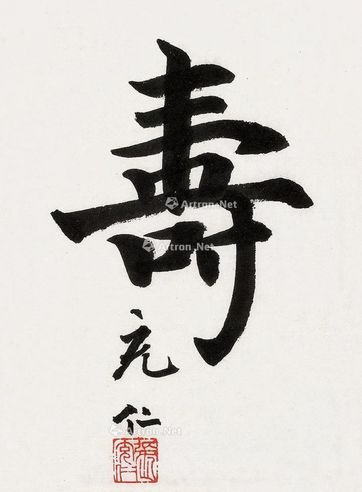 壽
充仁
Artron.Net
Artron.Net
Artron.Net